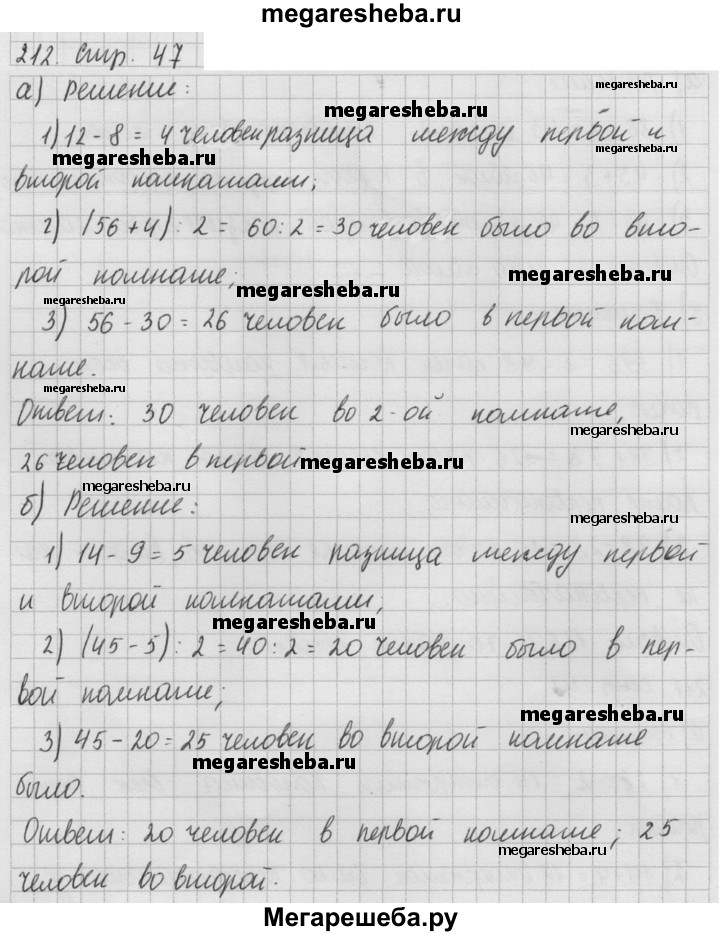 megaresheba.ru
212. стр. 47
а) Решение:
megaresheba.ru
megaresheba.ru
1) 12 - 8 = 4 человек разница между первой и
megaresheba.ru
megaresheba.ru
второй комнатами;
2) (56 + 4) : 2 = 60 : 2 = 30 человек было во вто-
рой комнате;
megaresheba.ru
megaresheba.ru
3) 56 - 30 = 26 человек было в первой ком-
нате.
megaresheba.ru
Ответ: 30 человек во 2-ой комнате,
megaresheba.ru
26 человек в первой
megaresheba.ru
megaresheba.ru
б) Решение:
megaresheba.ru
1) 14 - 9 = 5 человек разница между первой
и второй комнатами;
megaresheba.ru
2) (45 - 5) : 2 = 40 : 2 = 20 человек было в пер-
вой комнате;
megaresheba.ru
3) 45 - 20 = 25 человек во второй комнате
megaresheba.ru
было.
Ответ: 20 человек в первой комнате; 25
megaresheba.ru
человек во второй.
Мегарешеба.ру